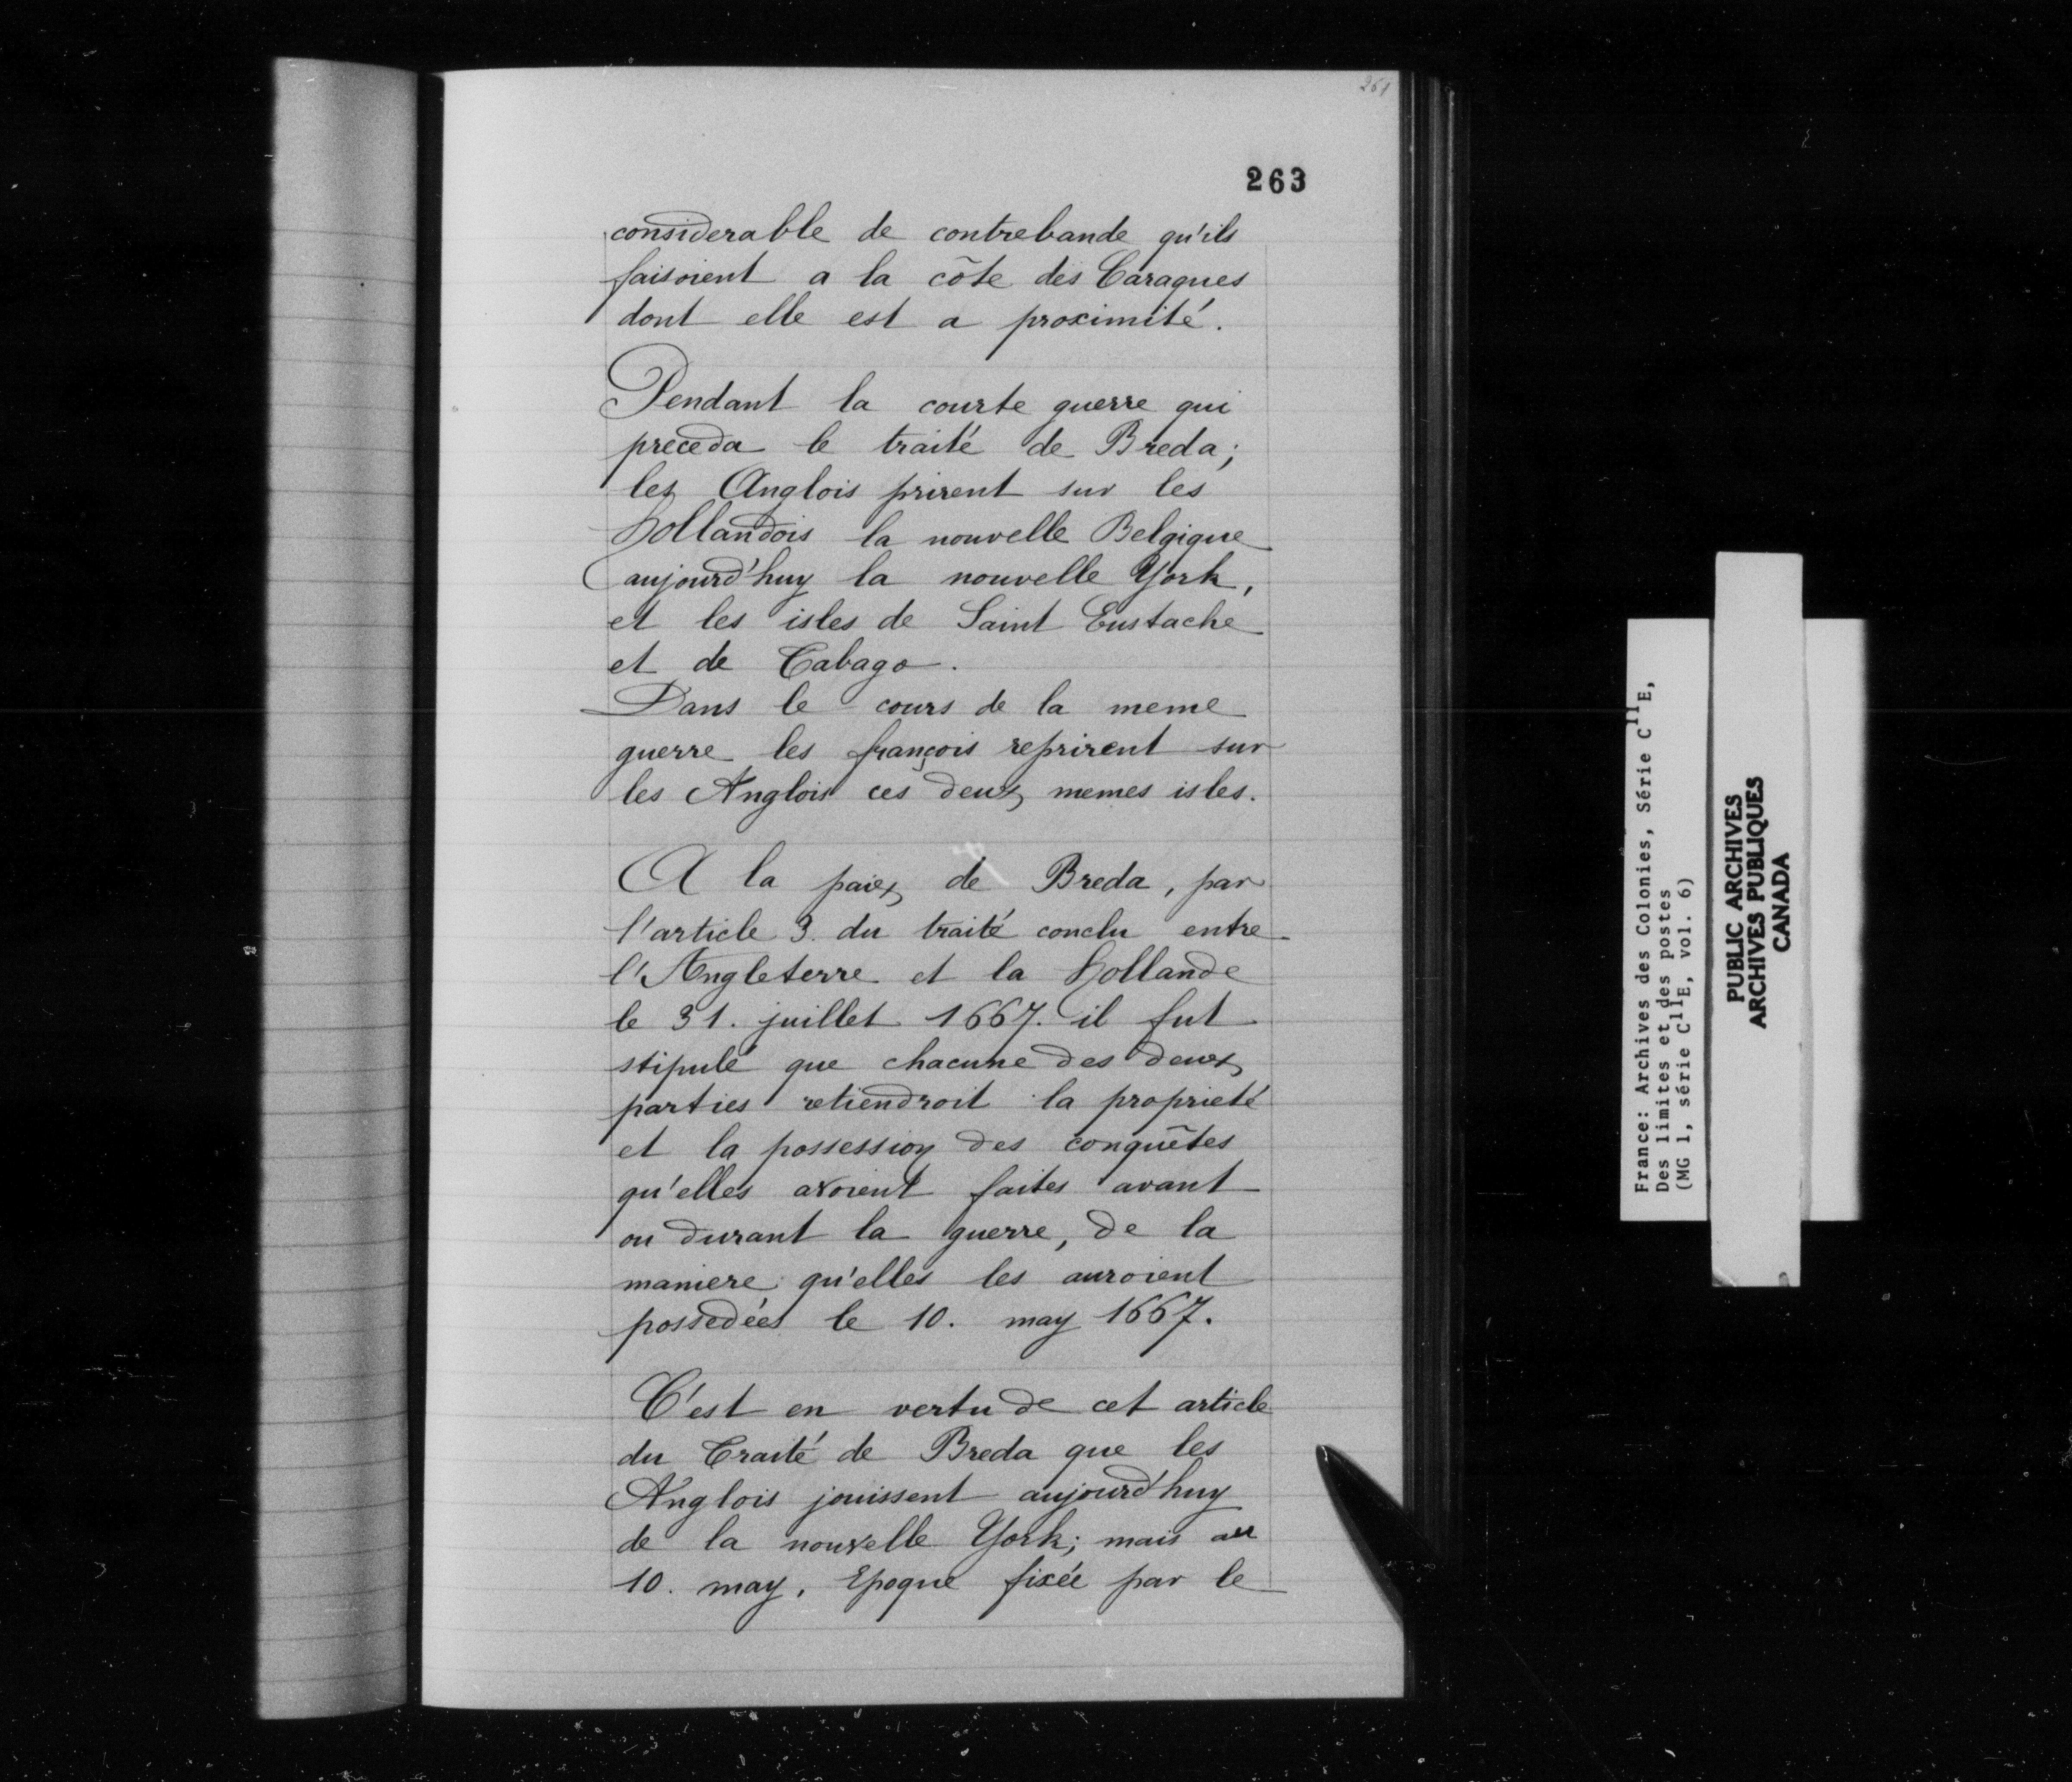 261
263
considerable de contrebande qu'ils
faisoient a la côte des Caraques
dont elle est a proximité.
Pendant la courte guerre qui
preceda le traité de Breda;
les Anglois prirent sur les
hollandois la nouvelle Belgique
aujourd'huy la nouvelle York,
et les isles de Saint Eustache
et de Tabago.
Dans le cours de la meme
guerre les françois reprirent sur
les Anglois ces deux memes isles.
A la paix de Breda, par
l'article 3. du traité conclu entre
l'Angleterre et la hollande
le 31. juillet 1667. il fut
stipulé que chacune des deux
parties retiendroit la proprieté
et la possession des conquêtes
qu'elles avoient faites avant
ou durant la guerre, de la
maniere qu'elles les auroient
possedées le 10. may 1667.
C'est en vertu de cet article
du Traité de Breda que les
Anglois jouissent aujourd'huy
de la nouvelle York; mais au
10. may, Epoque fixée par le
France: Archives des Colonies, Série C11E,
Des limites et des postes
(MG 1, série C11E, vol. 6)
PUBLIC ARCHIVES
ARCHIVES PUBLIQUES
CANADA